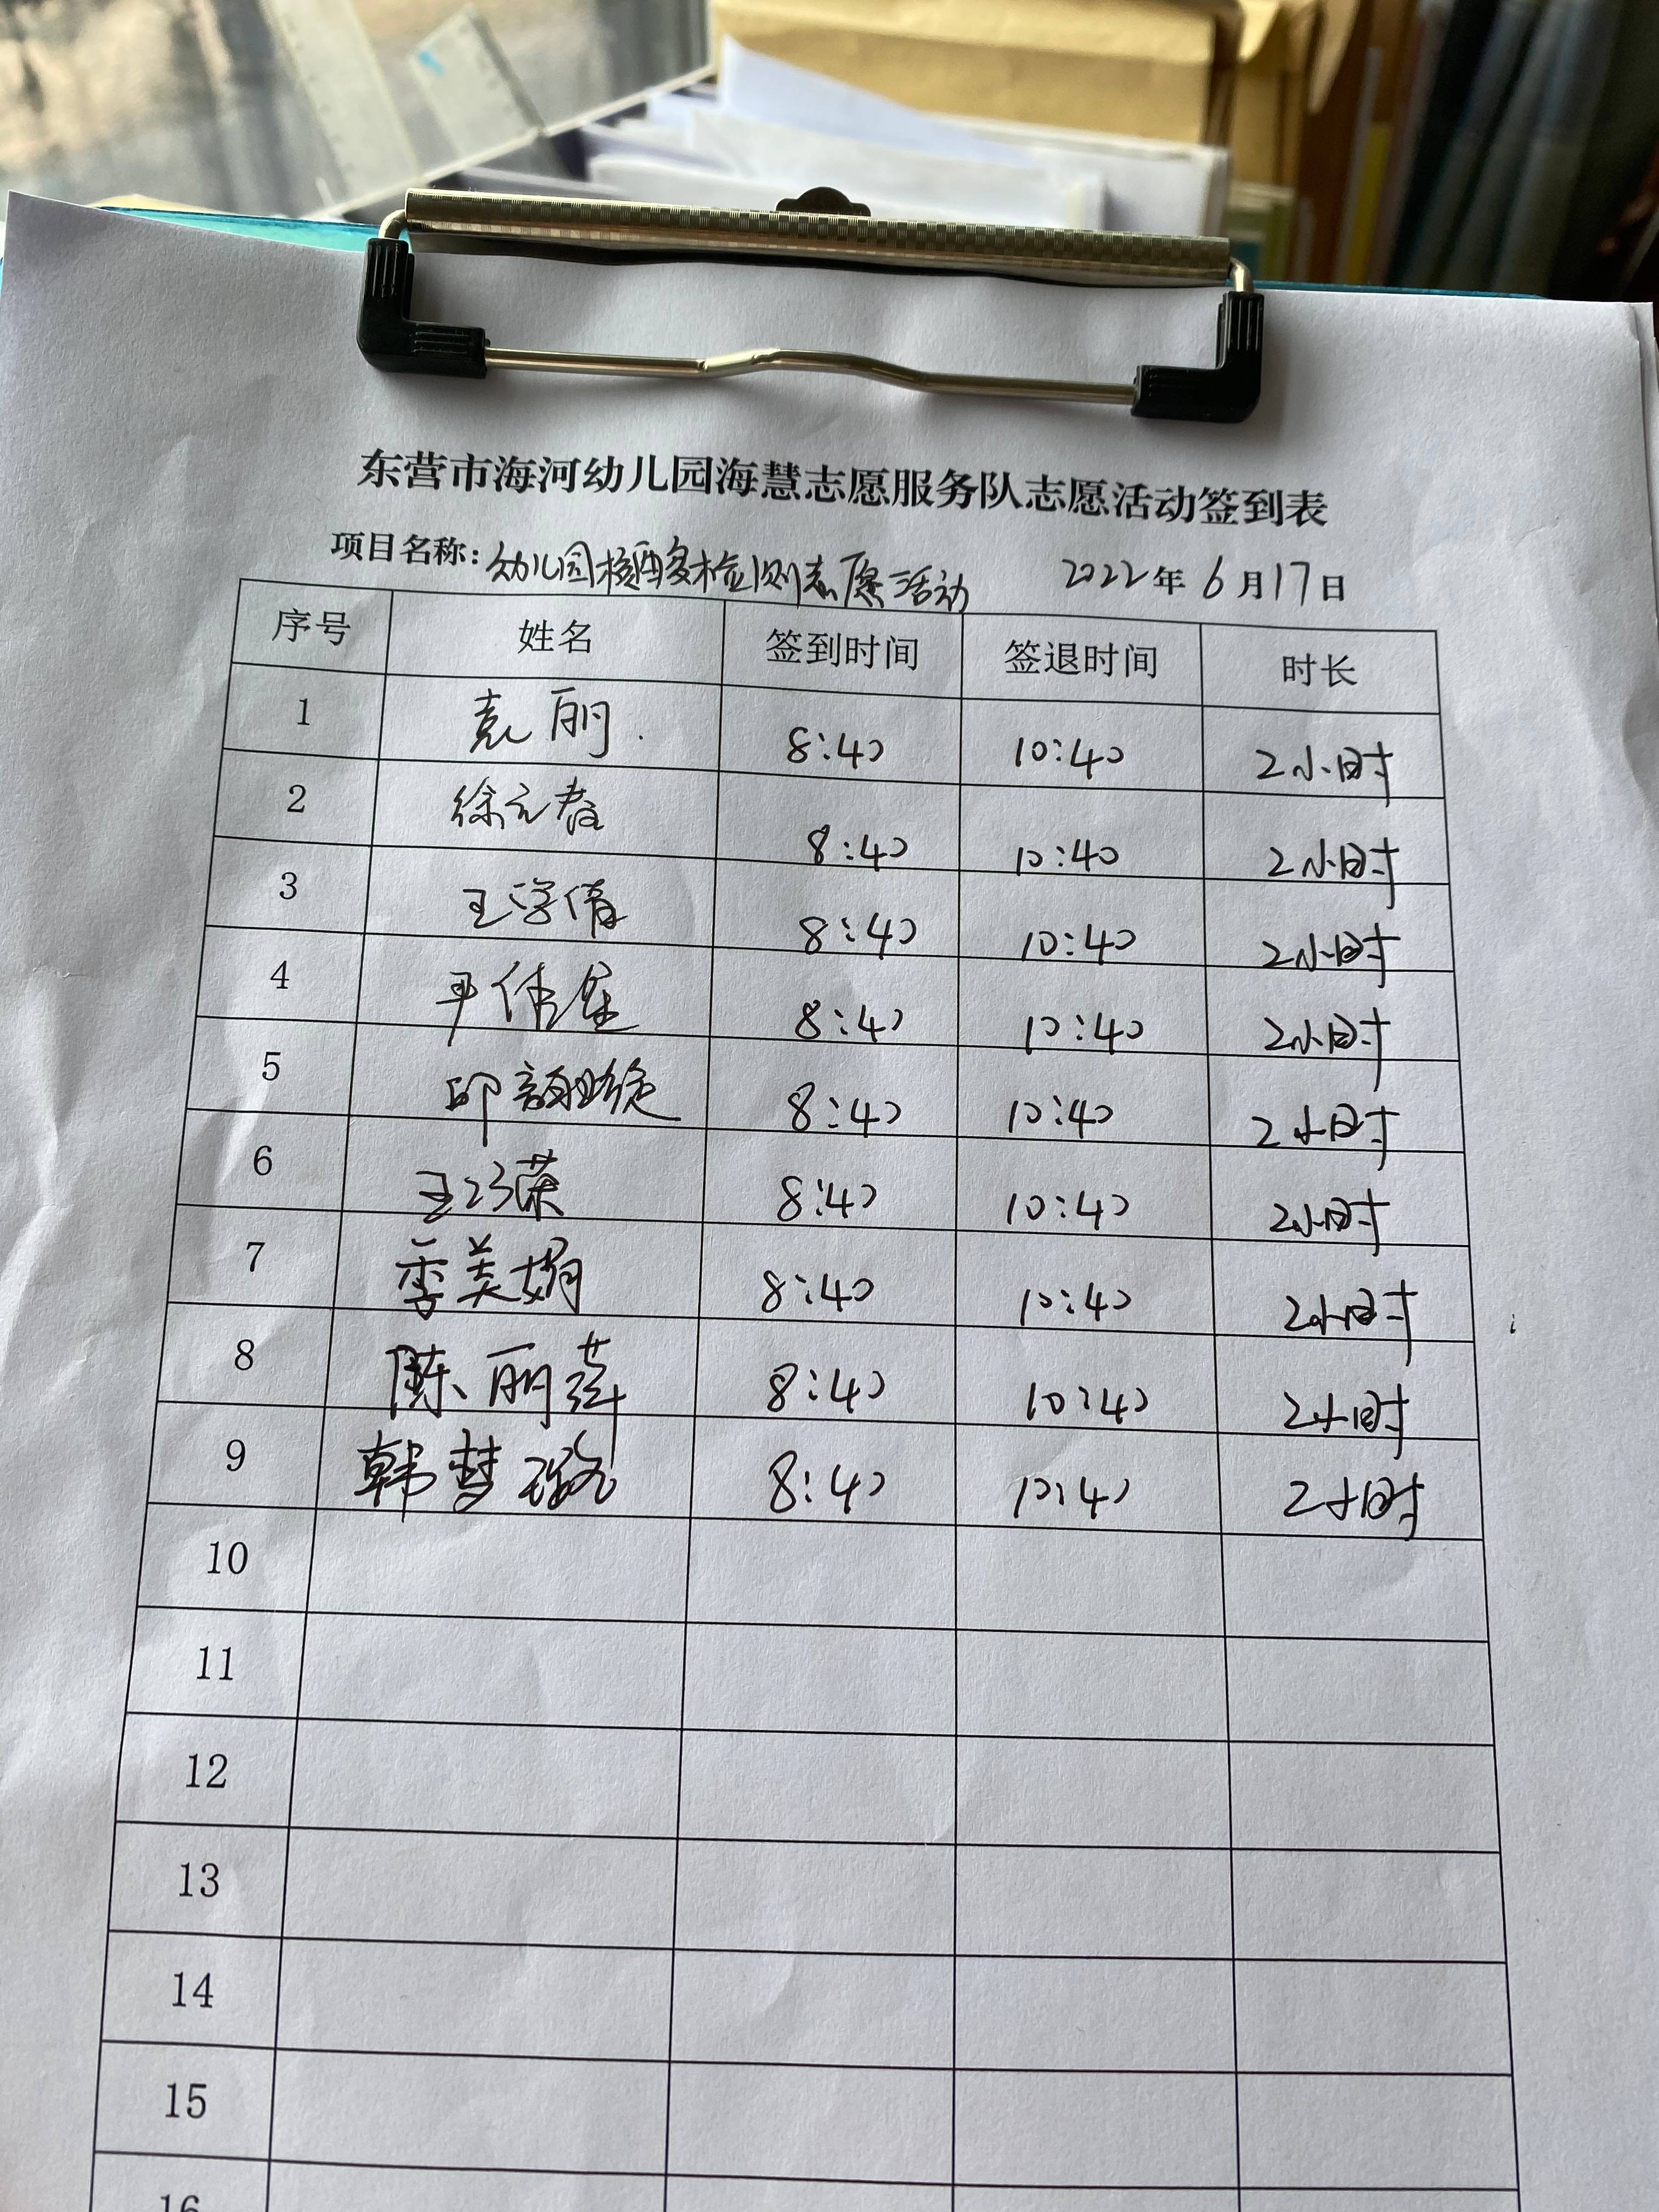 东营市海河幼儿园海慧志愿服务队志愿活动签到表
项目名称：幼儿园核酸检测志愿活动 2022年6月17日
序号 姓名 签到时间 签退时间 时长
1 袁丽 8:40 10:40 2小时
2 徐元春 8:40 10:40 2小时
3 王学倩 8:40 10:40 2小时
4 8:40 10:40 2小时
5 邱 8:40 10:40 2小时
6 王巧荣 8:40 10:40 2小时
7 季美娟 8:40 10:40 2小时
8 陈丽萍 8:40 10:40 2小时
9 韩梦璐 8:40 10:40 2小时
10
11
12
13
14
15
16